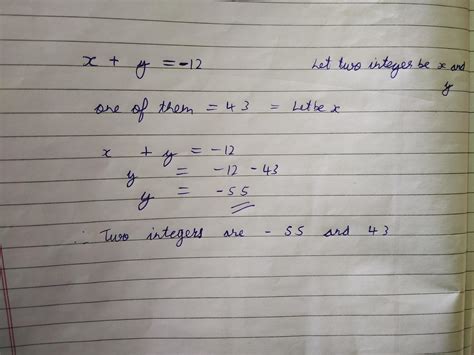 x + y = -12 Let two integer be x and y
one of them = 43 = Let be x
x + y = -12
y = -12 - 43
y = -55
∴ Two integers are - 55 and 43